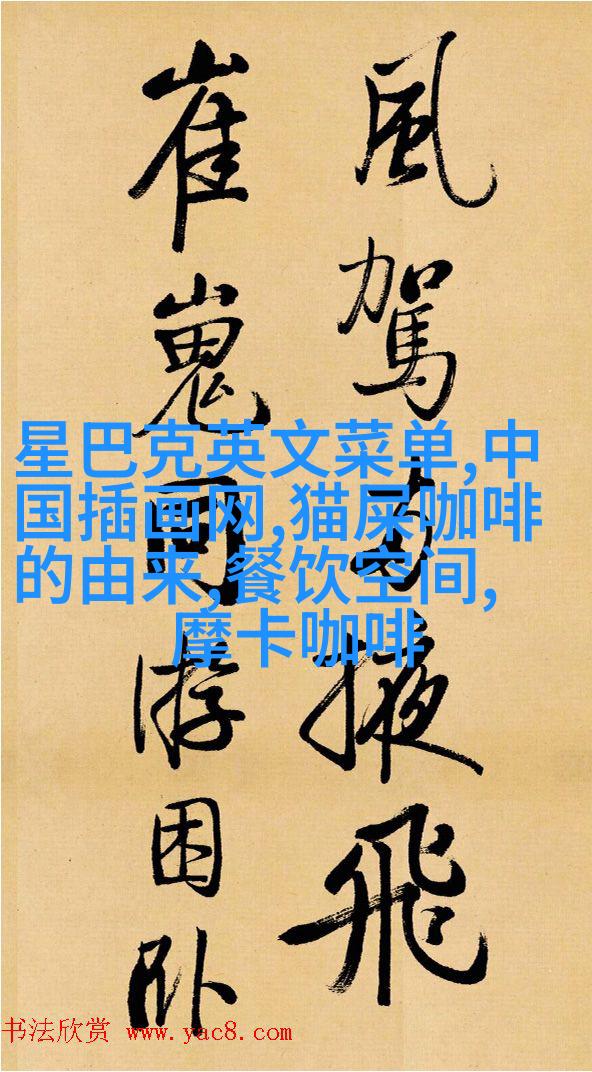 風駕掖飛
崔嵬游困卧
星巴克英文菜单,中
国插画网,猫屎咖啡
的由来,餐饮空间,
摩卡咖啡
书法欣赏 www.yac8.com